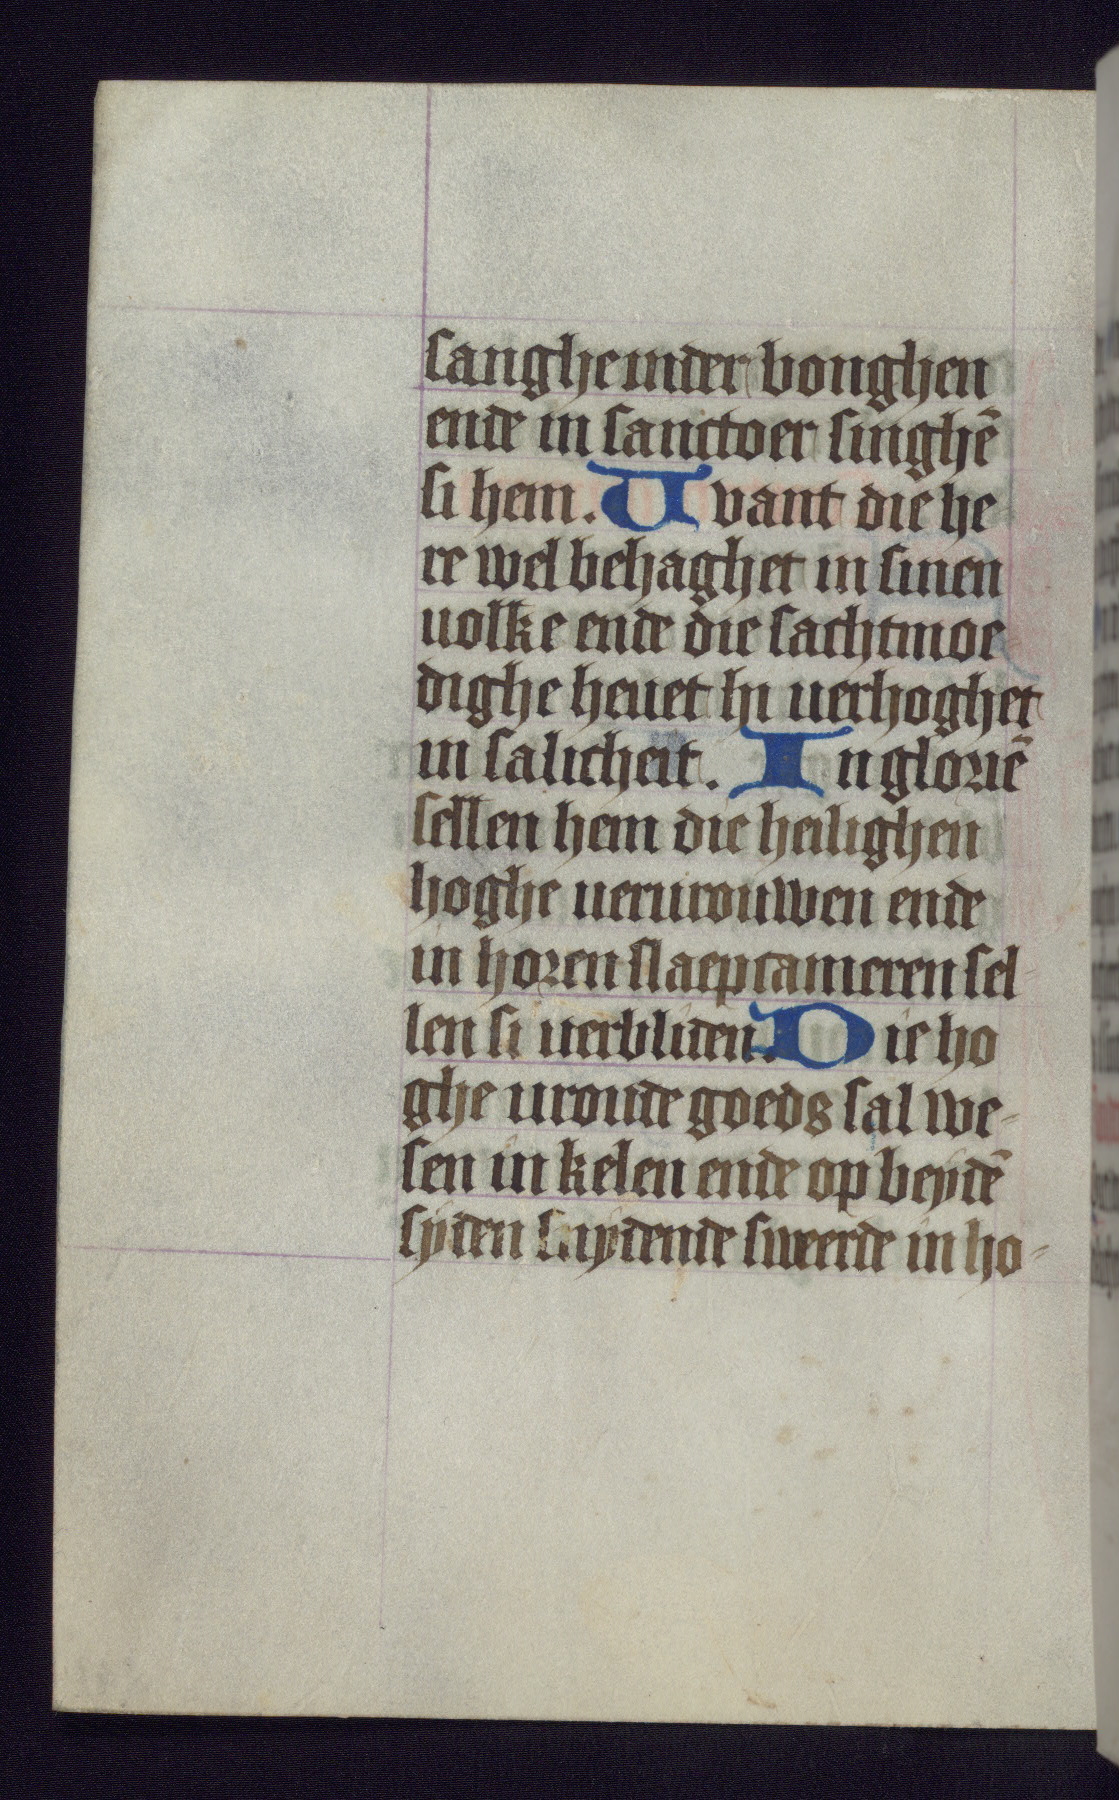 sanghe inder bonghen
ende in sanctoer singhē
si hem. U vant die he
re wel behaghet in sinen
uolke ende die sachtmoe
dighe heuet hi uerhoghet
in salicheit. In gloriē
sellen hem die heilighen
hoghe uerurouwen ende
in horen slaepcameren sel-
len si uerbliden. Die ho
ghe uroude goeds sal we-
sen in kelen ende op beydē
syden snydende sweerde in ho-